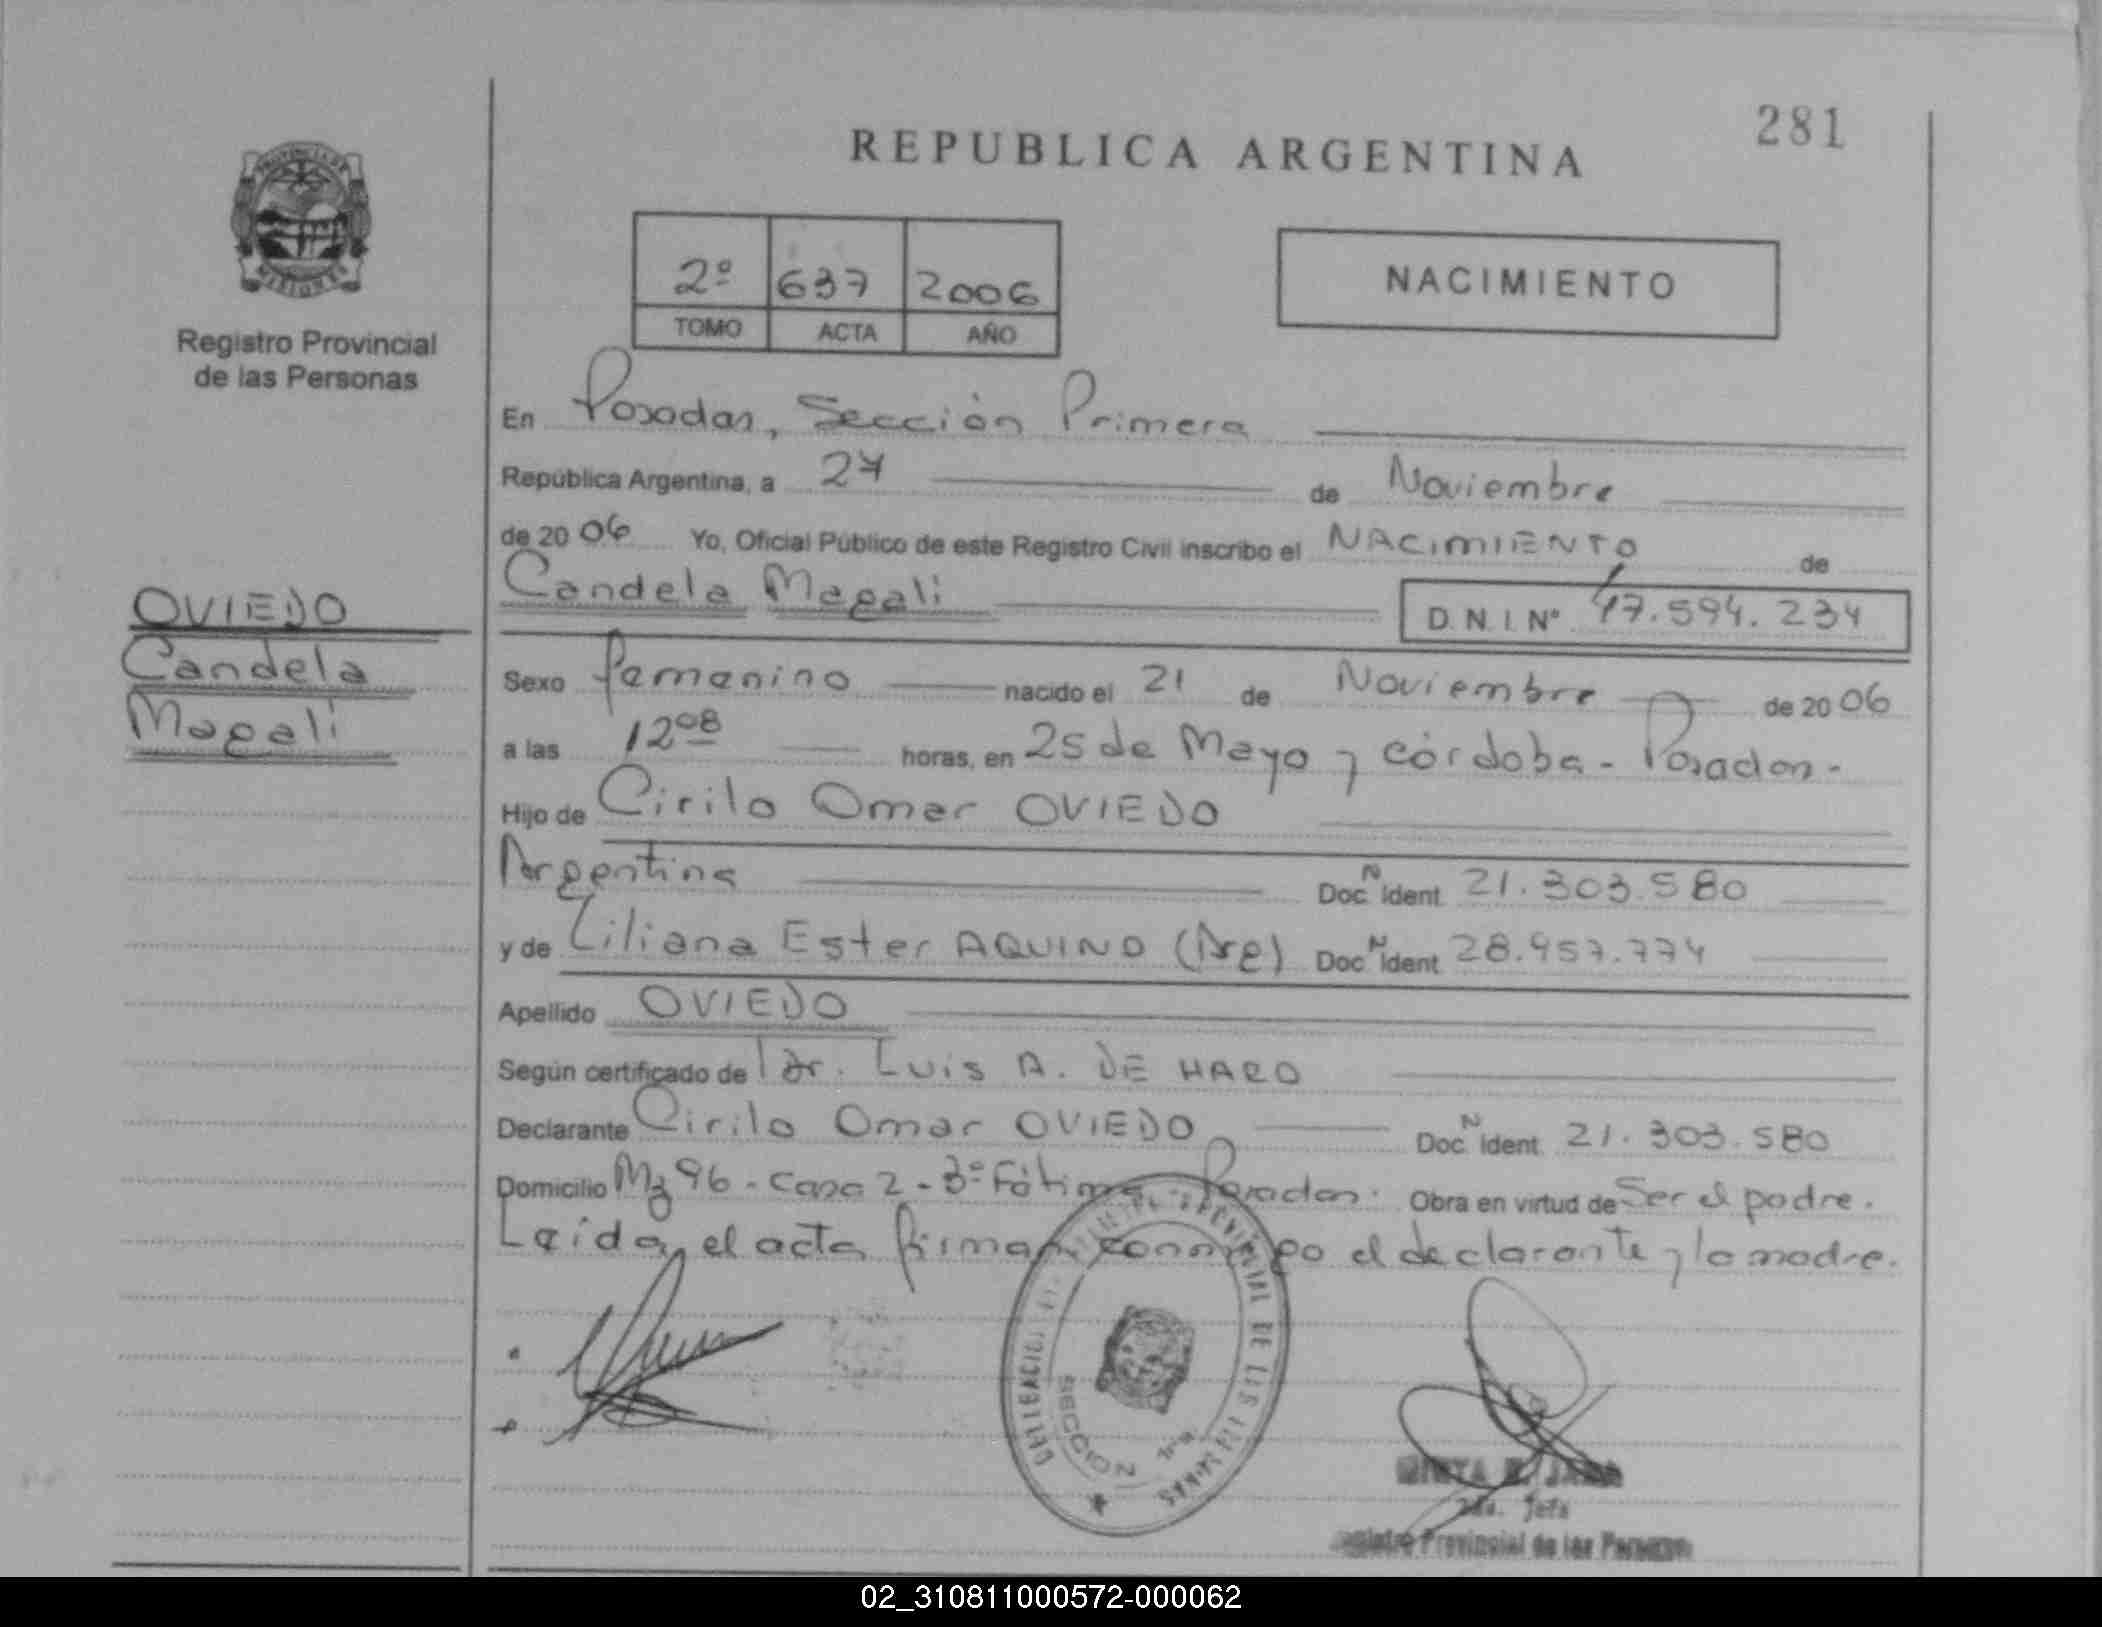 281
REPUBLICA ARGENTINA
2º 637 2006
TOMO ACTA AÑO
NACIMIENTO
Registro Provincial
de las Personas
OVIEDO
Candela
Magali
En Posadas, Sección Primera
República Argentina, a 27 de Noviembre
de 2006 Yo, Oficial Público de este Registro Civil inscribo el NACIMIENTO de
Candela Magali D.N.I. Nº 47.594.234
Sexo femenino nacido el 21 de Noviembre de 2006
a las 12 08 horas, en 25 de Mayo y córdoba - Posadas -
Hijo de Cirilo Omar OVIEDO
Argentina Doc. N Ident. 21.303.580
y de Liliana Ester AQUINO (Arg) Doc. N Ident. 28.957.774
Apellido OVIEDO
Según certificado de Dr. Luis A. DE HARO
Declarante Cirilo Omar OVIEDO Doc. N Ident. 21.303.580
Domicilio Mz 96 - Casa 2 - 3º Fátima - Posadas. Obra en virtud de Ser el padre.
Leída el acta firman conmigo el declarante y la madre.
DELEGACION REGISTRO PROVINCIAL DE LAS PERSONAS
SECCION 1ra.
2da. Jefa
Registro Provincial de las Personas
02_310811000572-000062